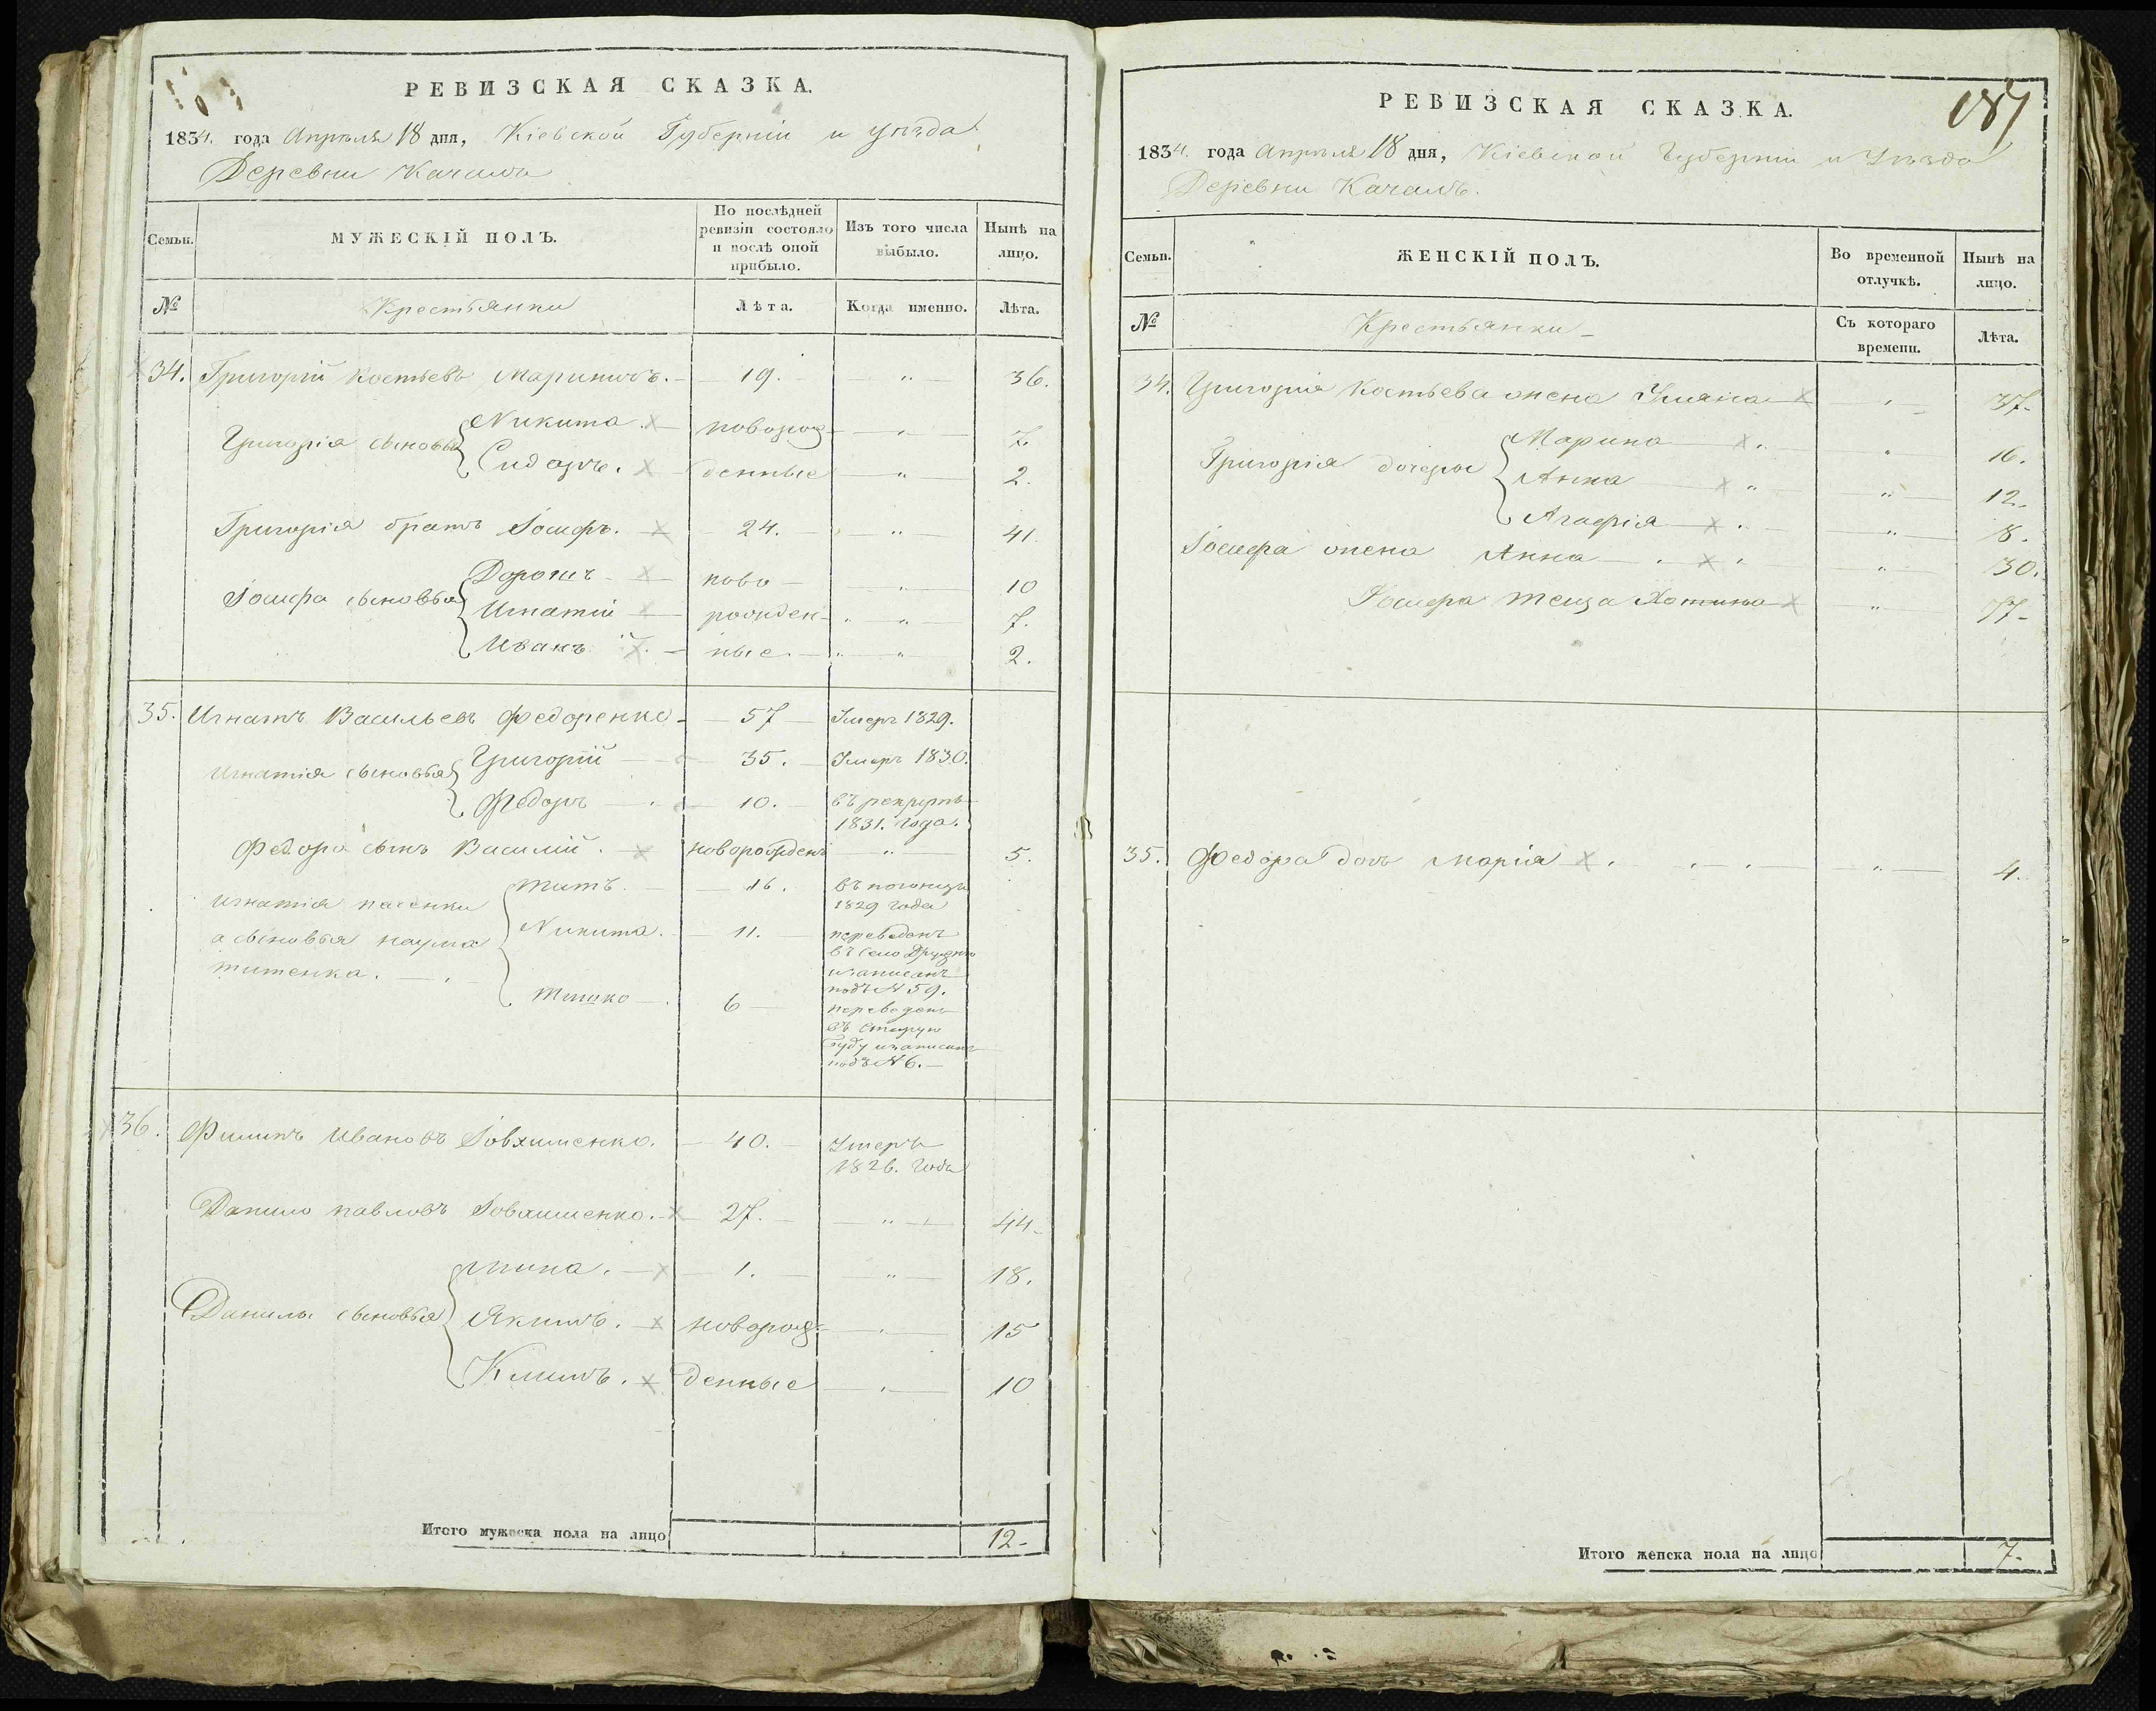 РЕВИЗСКАЯ СКАЗКА.
1834. года Апрѣля 18 дня, Кіевской Губерніи и уѣзда
Деревни Качалъ
Семьи.
МУЖЕСКІЙ ПОЛЪ.
По послѣдней ревизіи состояло и послѣ оной прибыло.
Изъ того числа выбыло.
Нынѣ на лицо.
№
Крестьянки
Лѣта.
Когда именно.
Лѣта.
34. Григорій Костьевъ Мариничъ. 19. „ 36.
Григорія сыновья
Никита. новорож- „ 7.
Сидоръ. денные „ 2.
Григорія братъ Іосифъ. 24. „ 41.
Іосифа сыновья
Дорошъ ново- „ 10
Игнатій рожден- „ „ 7.
Иванъ ные. „ „ 2.
35. Игнатъ Васильевъ Федоренко 57 Умеръ 1829.
Игнатія сыновья
Григорій 35. Умеръ 1830.
Федоръ 10. въ рекруты
1831. года.
Федора сынъ Василій. новорожденъ „ 5.
Игнатія пасенки
а сыновья Наума
титенка.
Титъ. 16.
1829 года
Никита. 11. переведенъ
въ село
изаписанъ
подъ № 59.
Тишко 6 переведенъ
въ Старую
Буду изаписанъ
подъ № 6.
36. Филипъ Ивановъ Іовхименко. 40. Умеръ
1826. года
Данило Павловъ Іовхименко. 27. „ 44.
Данилы сыновья
Мина. 1. „ 18.
Якимъ. новорож- „ 15
Климъ. денные „ 10
Итого мужеска пола на лицо 12.
187
РЕВИЗСКАЯ СКАЗКА.
1834. года Апрѣля 18 дня, Кіевской Губерніи и Уѣзда
Деревни Качалъ.
Семьи.
ЖЕНСКІЙ ПОЛЪ.
Во временной отлучкѣ.
Нынѣ на лицо.
№
Крестьянки
Съ котораго времени.
Лѣта.
34. Григорія Костьева жена Уліяна „ 37.
Григорія дочери
Марина „ 16.
Анна „ 12.
Агафія „ 8.
Іосифа жена Анна „ 30.
Іосифа теща „ 77
35. Федора дочь Марія „ 4.
Итого женска пола на лицо 7.